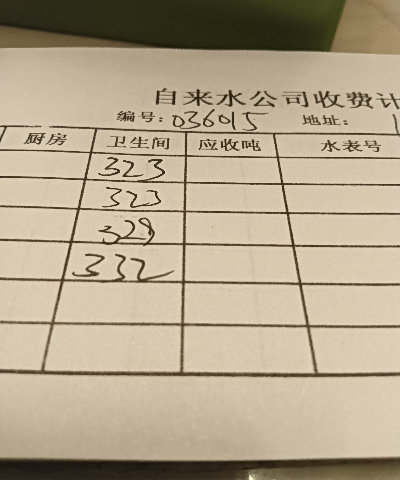 自来水公司收费计
编号: 036015 地址:
厨房 卫生间 应收吨 水表号
323
323
329
332